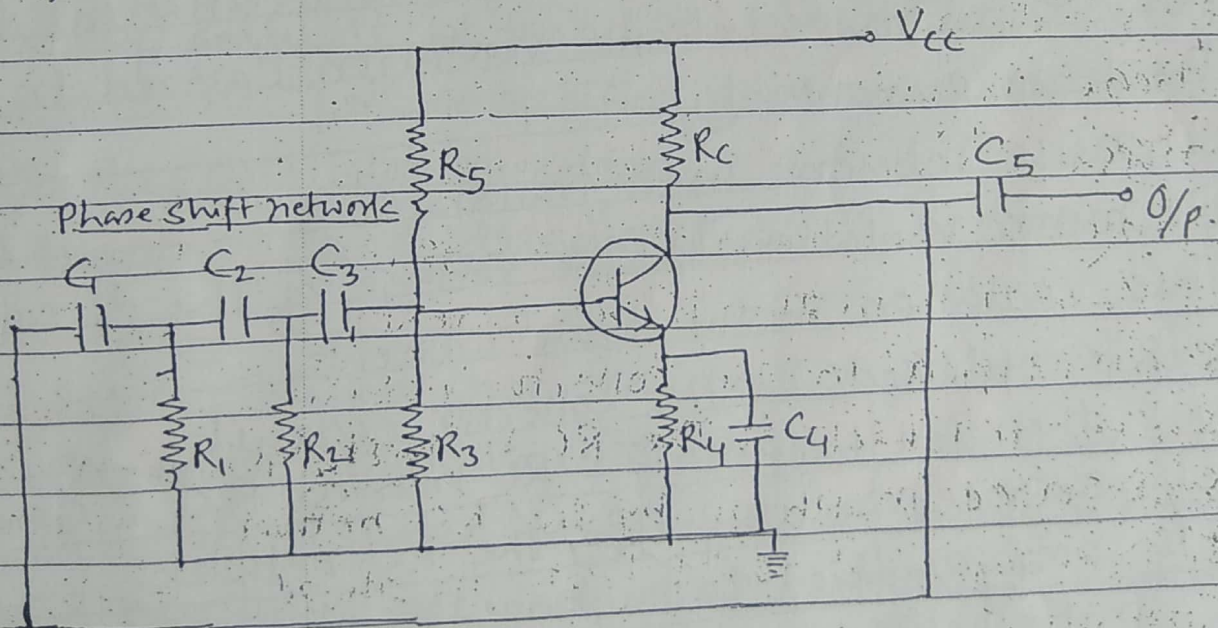 VCC
R5
RC
C5
O/p.
Phase shift network
C1
C2
C3
R1
R2
R3
R4
C4